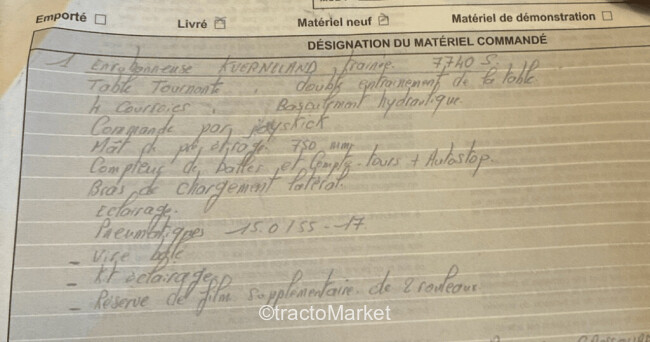 Emporté
Livré
Matériel neuf
Matériel de démonstration
DÉSIGNATION DU MATÉRIEL COMMANDÉ
1 Enrubanneuse KVERNELAND trainée. 7740 S.
Table Tournante. double entrainement de la table
4 Courroies. Basculement hydraulique.
Commande par joystick
Mât de pré-étirage 750 mm
Compteur de balles et Compte-tours + Autostop.
Bras de chargement latéral.
Eclairage.
Pneumatiques 15.0/55-17
- Vire balle
- Kit éclairage
- Réserve de film supplémentaire de 2 rouleaux
©tractoMarket